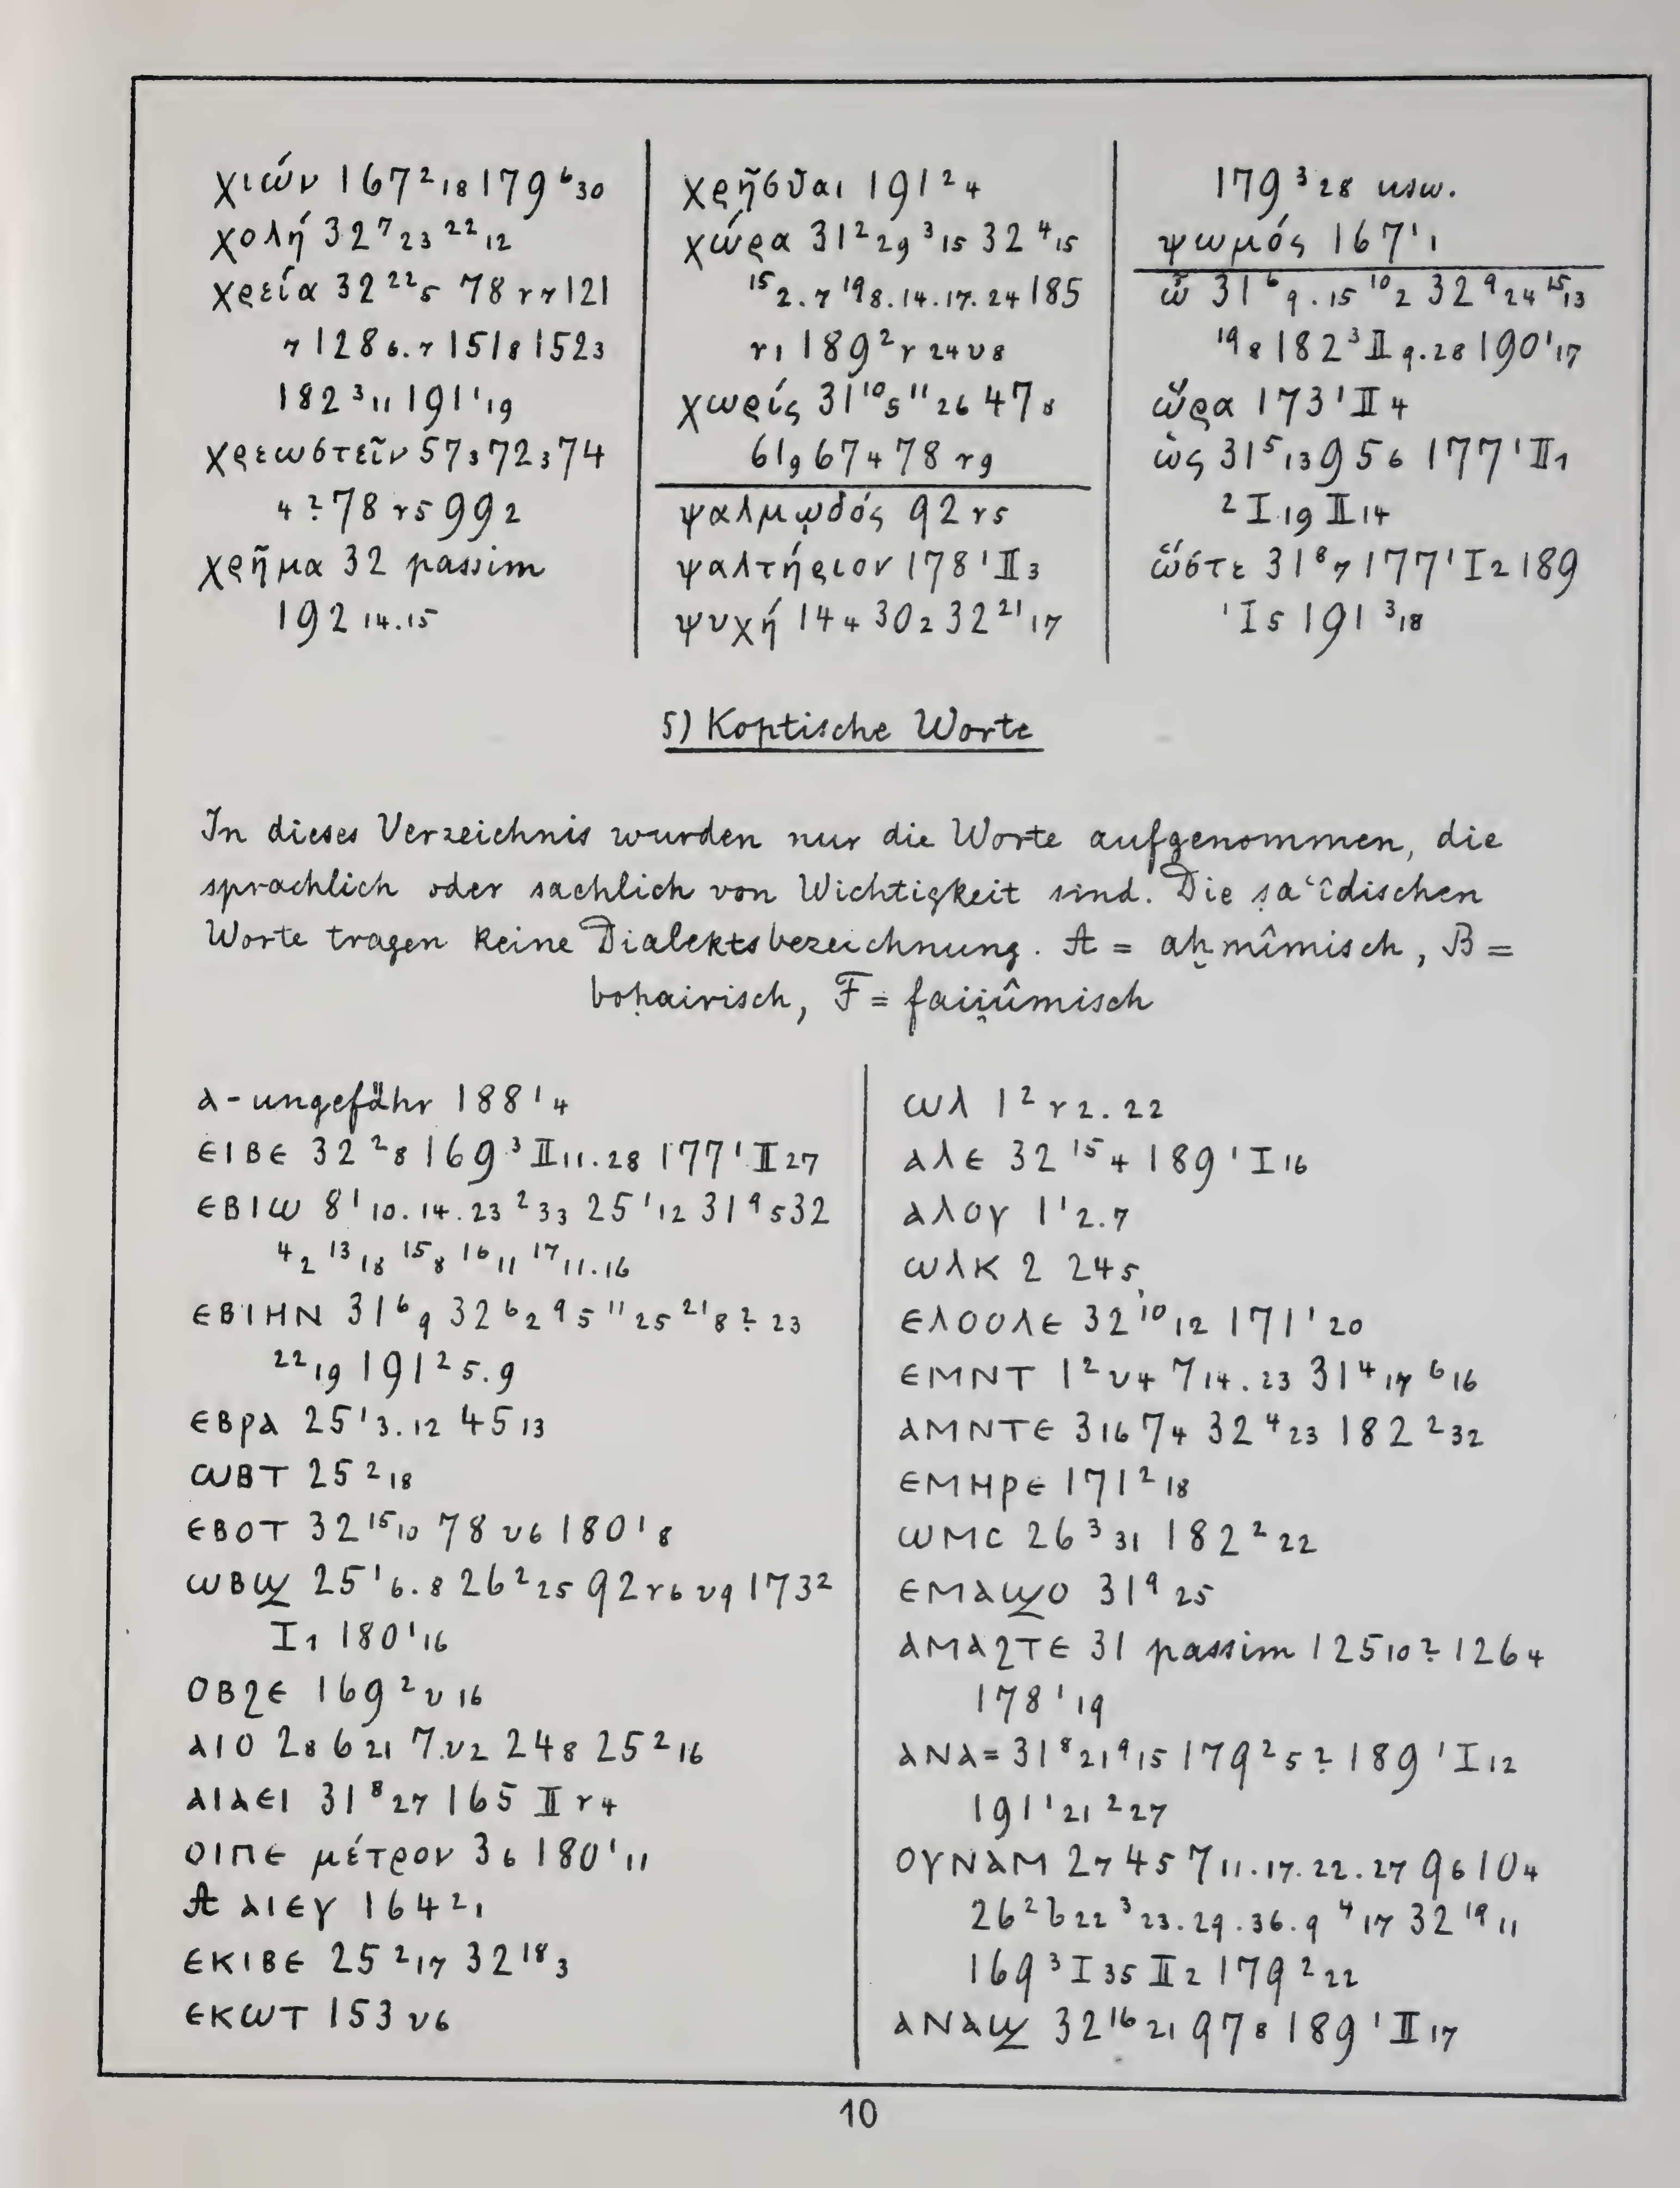 χιών 167² ₁₈ 179⁶ ₃₀
χολή 32⁷ ₂₃ ²² ₁₂
χρεία 32²² ₅ 78 r₇ 121
₇ 128 ₆.₇ 151₈ 152₃
182³ ₁₁ 191¹ ₁₉
χρεωστεῖν 57₃ 72₃ 74
₄? 78 r₅ 99₂
χρῆμα 32 passim
192 ₁₄.₁₅
χρῆσθαι 191² ₄
χώρα 31² ₂₉ ³ ₁₅ 32⁴ ₁₅
¹⁵ ₂.₇ ¹⁹ ₈.₁₄.₁₇.₂₄ 185
r₁ 189² r ₂₄ v₈
χωρίς 31¹⁰ ₅ ¹¹ ₂₆ 47₈
61₉ 67₄ 78 r₉
ψαλμῳδός 92 r₅
ψαλτήριον 178¹ II₃
ψυχή 14₄ 30₂ 32²¹ ₁₇
179³ ₂₈ usw.
ψωμός 167¹ ₁
ὦ 31⁶ ₉.₁₅ ¹⁰ ₂ 32⁹ ₂₄ ¹⁵ ₁₃
¹⁹ ₈ 182³ II ₉.₂₈ 190¹ ₁₇
ὥρα 173¹ II₄
ὡς 31⁵ ₁₃ 95₆ 177¹ II₁
² I ₁₉ II ₁₄
ὥστε 31⁸ ₇ 177¹ I₂ 189
¹ I₅ 191³ ₁₈
5) Koptische Worte
In dieses Verzeichnis wurden nur die Worte aufgenommen, die
sprachlich oder sachlich von Wichtigkeit sind. Die ṣaʿîdischen
Worte tragen keine Dialektsbezeichnung. A = aḫmîmisch, B =
boḥairisch, F = faii̯ûmisch
ⲁ- ungefähr 188¹ ₄
ⲉⲓⲃⲉ 32² ₈ 169³ II ₁₁.₂₈ 177¹ II ₂₇
ⲉⲃⲓⲱ 8¹ ₁₀.₁₄.₂₃ ² ₃₃ 25¹ ₁₂ 31⁹ ₅ 32
⁴ ₂ ¹³ ₁₈ ¹⁵ ₈ ¹⁶ ₁₁ ¹⁷ ₁₁.₁₆
ⲉⲃⲓⲏⲛ 31⁶ ₉ 32⁶ ₂ ⁹ ₅ ¹¹ ₂₅ ²¹ ₈? ₂₃
²² ₁₉ 191² ₅.₉
ⲉⲃⲣⲁ 25¹ ₃.₁₂ 45₁₃
ⲱⲃⲧ 25² ₁₈
ⲉⲃⲟⲧ 32¹⁵ ₁₀ 78 v₆ 180¹ ₈
ⲱⲃϣ 25¹ ₆.₈ 26² ₂₅ 92 r₆ v₉ 173²
I₁ 180¹ ₁₆
ⲟⲃϩⲉ 169² v ₁₆
ⲁⲓⲟ 2₈ 6₂₁ 7.v₂ 24₈ 25² ₁₆
ⲁⲓⲁⲉⲓ 31⁸ ₂₇ 165 II r₄
ⲟⲓⲡⲉ μέτρον 3₆ 180¹ ₁₁
A ⲁⲓⲉⲩ 164² ₁
ⲉⲕⲓⲃⲉ 25² ₁₇ 32¹⁸ ₃
ⲉⲕⲱⲧ 153 v₆
ⲱⲗ 1² r₂.₂₂
ⲁⲗⲉ 32¹⁵ ₄ 189¹ I ₁₆
ⲁⲗⲟⲩ 1¹ ₂.₇
ⲱⲗⲕ 2 24₅
ⲉⲗⲟⲟⲗⲉ 32¹⁰ ₁₂ 171¹ ₂₀
ⲉⲙⲛⲧ 1² v₄ 7₁₄.₂₃ 31⁴ ₁₇ ⁶ ₁₆
ⲁⲙⲛⲧⲉ 3₁₆ 7₄ 32⁴ ₂₃ 182² ₃₂
ⲉⲙⲏⲣⲉ 171² ₁₈
ⲱⲙⲥ 26³ ₃₁ 182² ₂₂
ⲉⲙⲁϣⲟ 31⁹ ₂₅
ⲁⲙⲁϩⲧⲉ 31 passim 125₁₀? 126₄
178¹ ₁₉
ⲁⲛⲁ= 31⁸ ₂₁ ⁹ ₁₅ 179² ₅? 189¹ I ₁₂
191¹ ₂₁ ² ₂₇
ⲟⲩⲛⲁⲙ 2₇ 4₅ 7₁₁.₁₇.₂₂.₂₇ 9₆ 10₄
26² b ₂₂ ³ ₂₃.₂₉.₃₆.₉ ⁴ ₁₇ 32¹⁹ ₁₁
169³ I ₃₅ II₂ 179² ₂₂
ⲁⲛⲁϣ 32¹⁶ ₂₁ 97₈ 189¹ II ₁₇
10